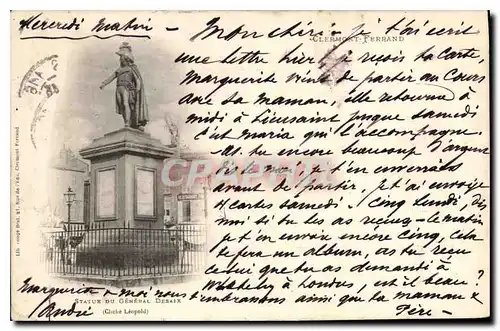 Mercredi Matin -
CLERMONT-FERRAND
Mon chéri - je t'ai écrit
une lettre hier, je reçois ta carte,
Marguerite vient de partir au Cours
avec sa Maman, elle retourne à
midi à Lieusaint jusque samedi
c'est Maria qui l'accompagne.
As-tu encore beaucoup d'argent
dis-le moi je t'en enverrais
avant de partir, je t'ai envoyé
4 cartes samedi. 5 cinq Lundi, Dis
moi si tu les as reçues - ce matin
je t'en envoie encore cinq, cela te
fera un album, as-tu reçu
celui que tu as demandé à
à Londres, est il beau?
Marguerite & moi nous t'embrassons ainsi que ta maman &
André Père -
STATUE DU GÉNÉRAL DESAIX
(Cliché Léopold)
CPArama